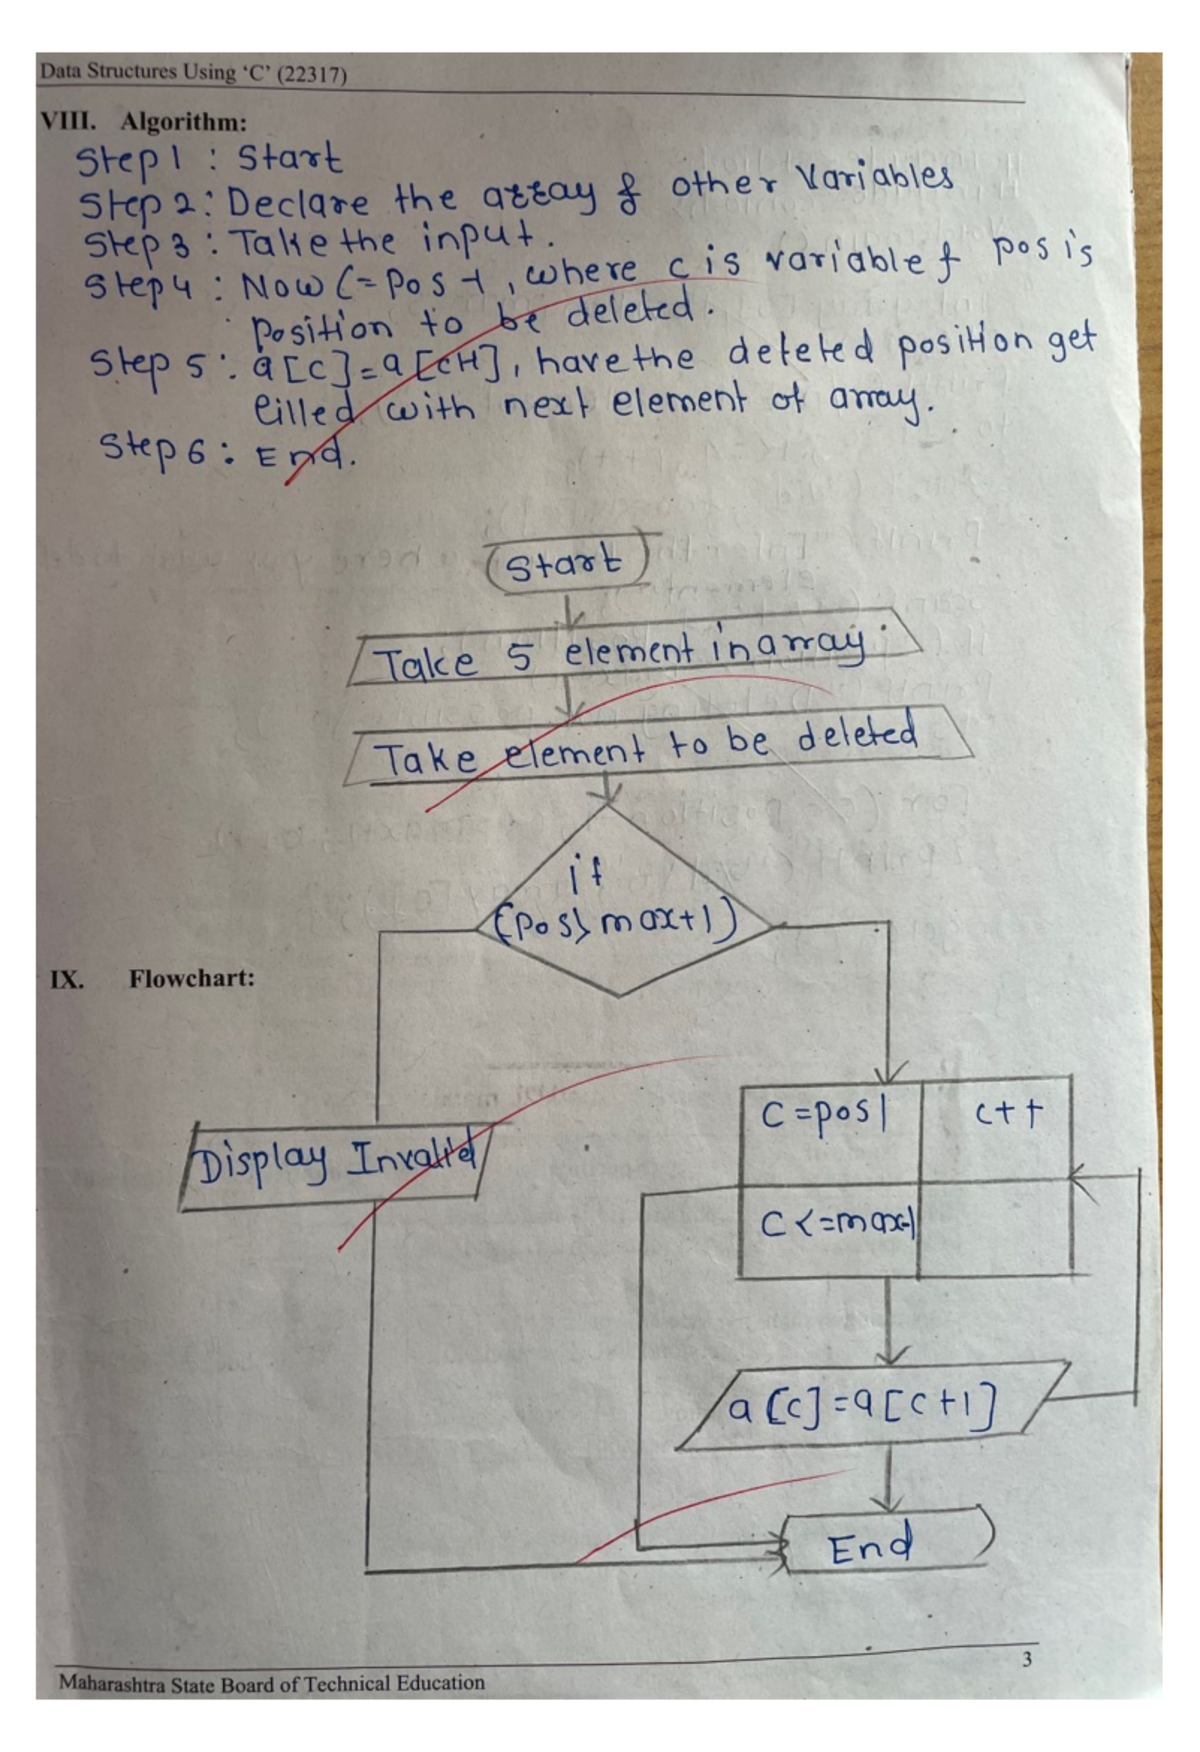 Data Structures Using 'C' (22317)
VIII. Algorithm:
Step 1 : Start
Step 2 : Declare the array & other Variables
Step 3 : Take the input.
Step 4 : Now C = Pos-1, where c is variable & pos is
position to be deleted.
Step 5 : a[c]=a[c+1], have the deleted position get
filled with next element of array.
Step 6 : End.
Start
Take 5 element in array.
Take element to be deleted
if
(Pos> max+1)
IX. Flowchart:
C=pos1 c++
Display Invalid
C<=max-1
a[c]=a[c+1]
End
3
Maharashtra State Board of Technical Education